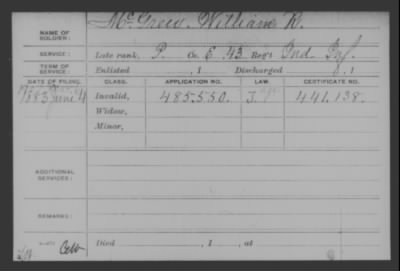 NAME OF SOLDIER: McGrew, William R.
SERVICE: Late rank, P. Co. E, 43 Reg't Ind. Inf.
TERM OF SERVICE: Enlisted , 1 Discharged , 1
DATE OF FILING. CLASS. APPLICATION NO. LAW. CERTIFICATE NO.
1883 June 4 Invalid, 485.550. 441.138.
Widow,
Minor,
ADDITIONAL SERVICES:
REMARKS:
Died , 1 , at